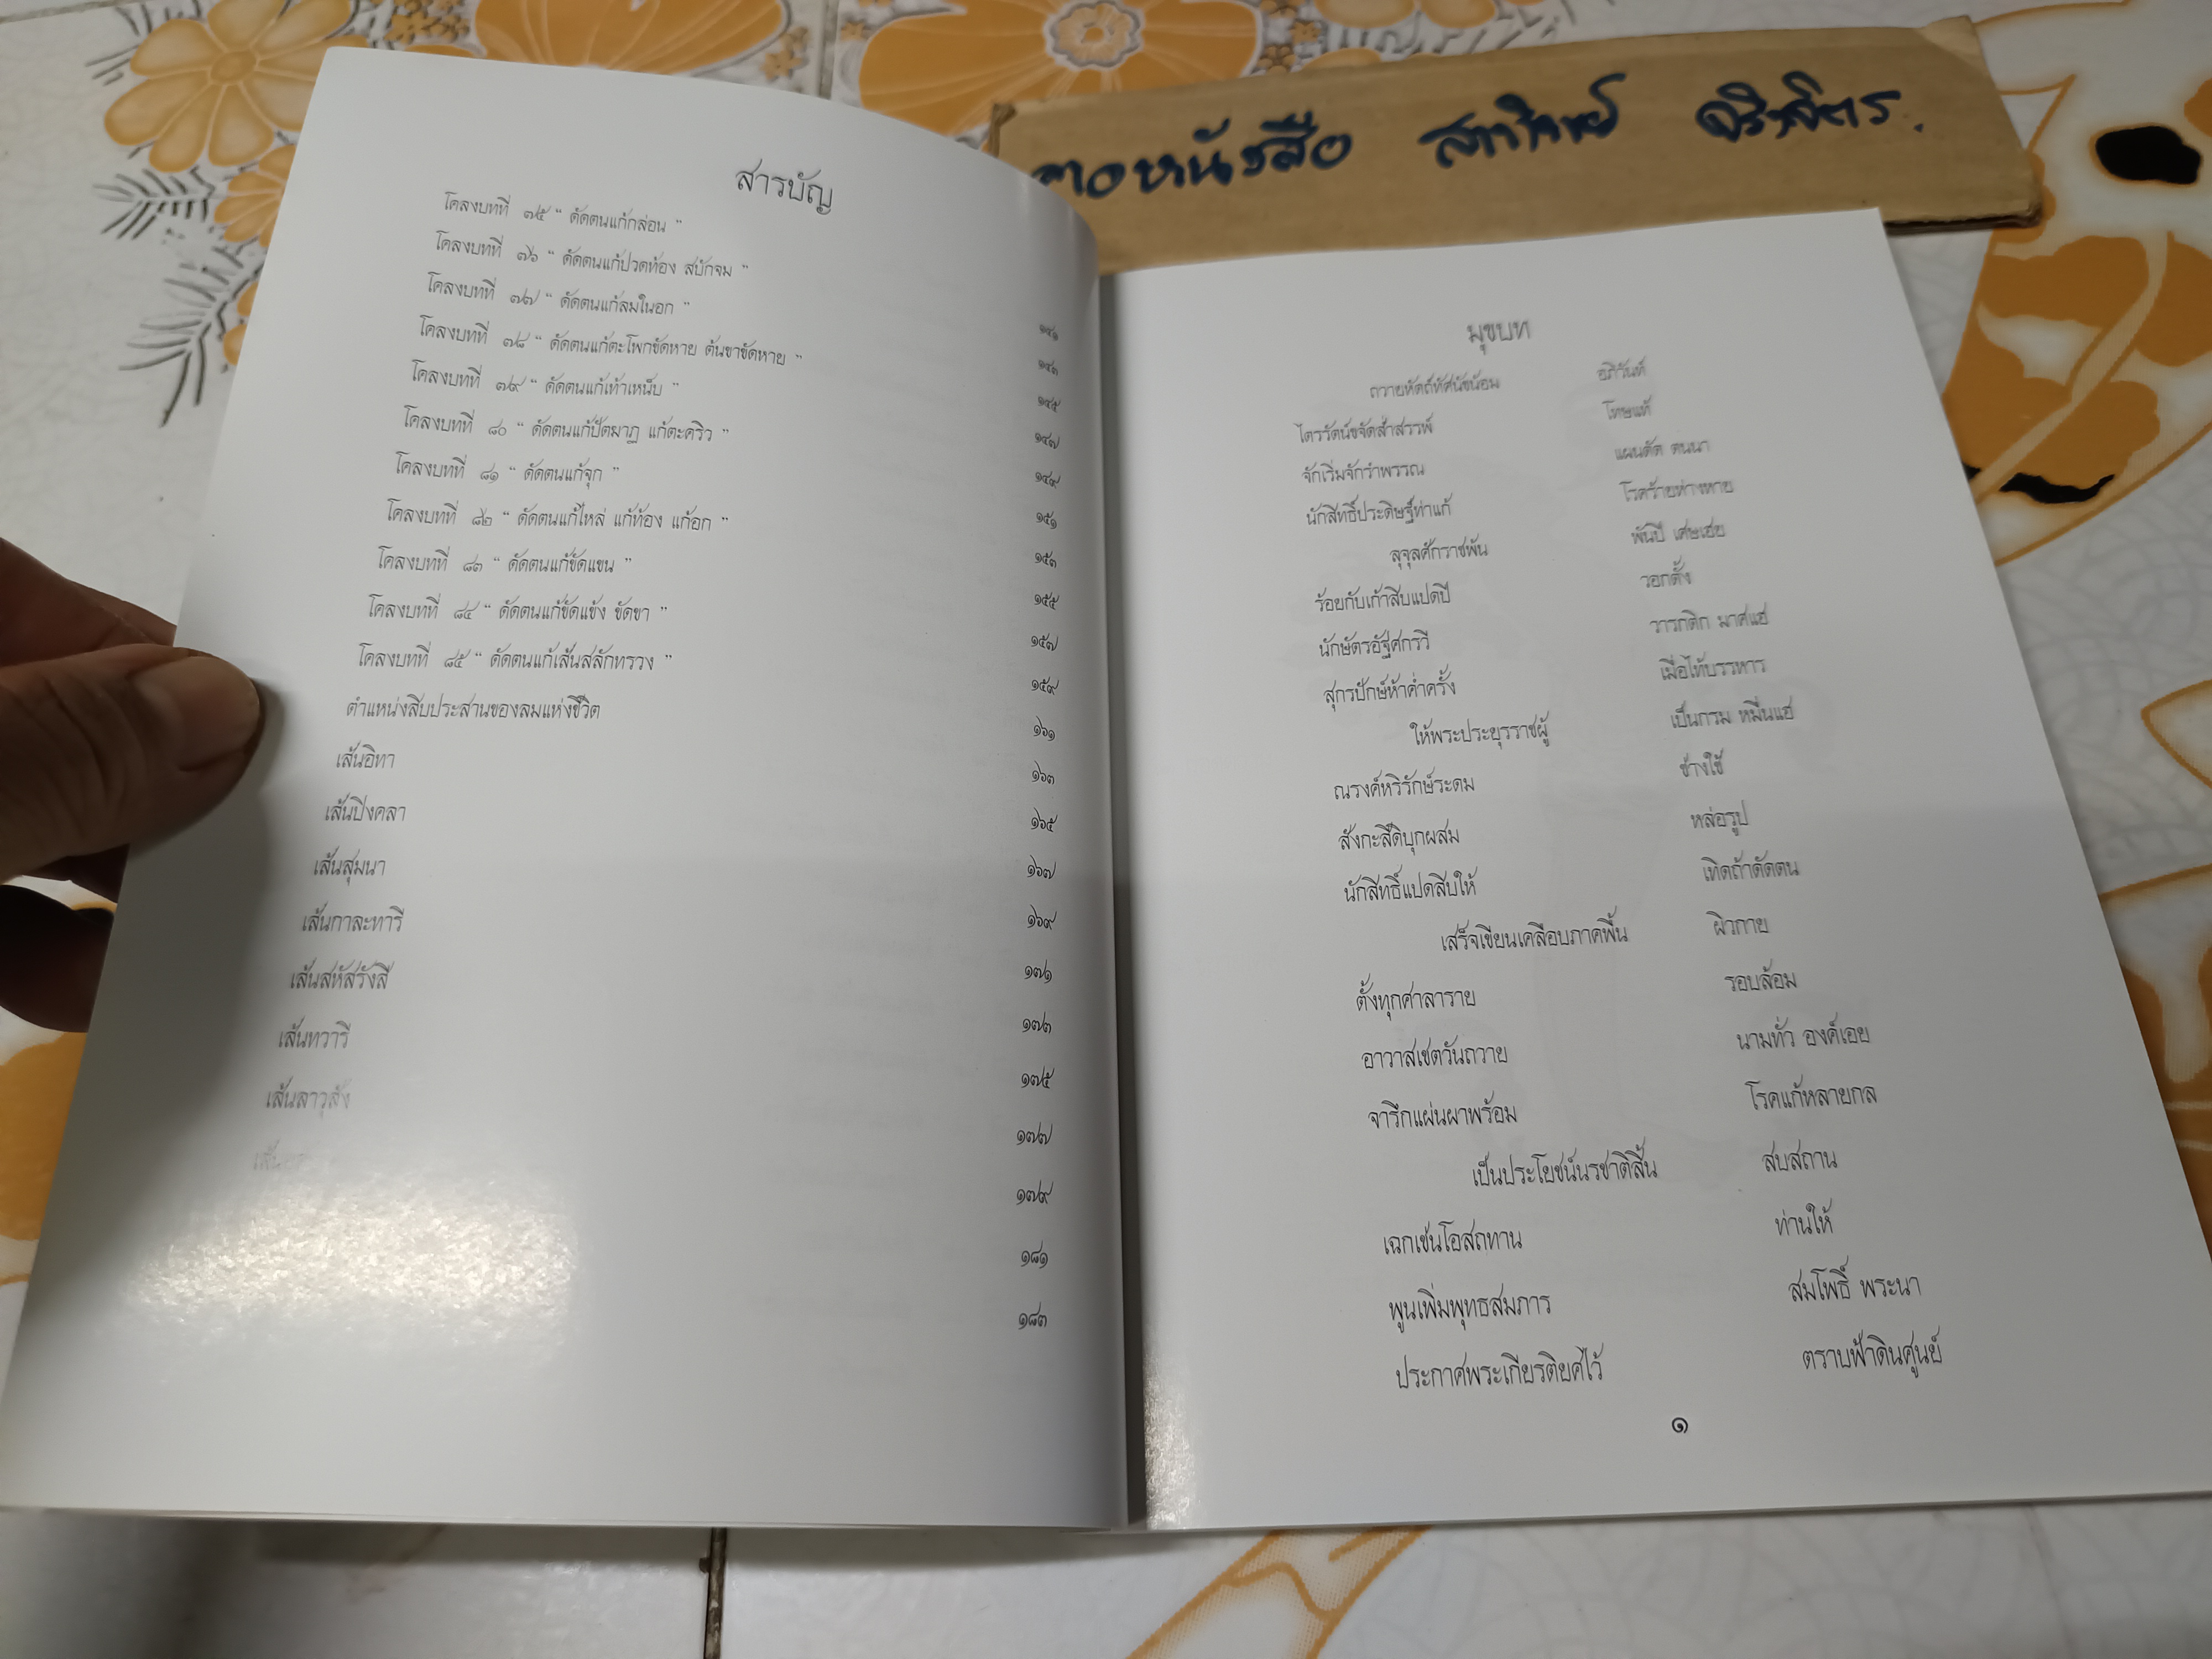 หนังสือ
สารบัญ
โคลงบทที่ ๗๕ “ ดัดตนแก้กล่อน ”
โคลงบทที่ ๗๖ “ ดัดตนแก้ปวดท้อง สบักจม ”
โคลงบทที่ ๗๗ “ ดัดตนแก้ลมในอก ”
โคลงบทที่ ๗๘ “ ดัดตนแก้ตะโพกขัดหาย ต้นขาขัดหาย ” ๑๔๑
โคลงบทที่ ๗๙ “ ดัดตนแก้เท้าเหน็บ ” ๑๔๓
โคลงบทที่ ๘๐ “ ดัดตนแก้ปัตฆาฏ แก้ตะคริว ” ๑๔๕
โคลงบทที่ ๘๑ “ ดัดตนแก้จุก ” ๑๔๗
โคลงบทที่ ๘๒ “ ดัดตนแก้ไหล่ แก้ท้อง แก้อก ” ๑๔๙
โคลงบทที่ ๘๓ “ ดัดตนแก้ขัดแขน ” ๑๕๑
โคลงบทที่ ๘๔ “ ดัดตนแก้ขัดแข้ง ขัดขา ” ๑๕๓
โคลงบทที่ ๘๕ “ ดัดตนแก้เส้นสลักทรวง ” ๑๕๕
ตำแหน่งสิบประสานของลมแห่งชีวิต ๑๕๗
๑๕๙
เส้นอิทา ๑๖๑
เส้นปิงคลา ๑๖๓
๑๖๕
เส้นสุมนา ๑๖๗
เส้นกาละทารี ๑๖๙
เส้นสหัสรังสี ๑๗๑
เส้นทวารี ๑๗๓
เส้นลาวุสัง ๑๗๕
๑๗๗
๑๗๙
๑๘๑
๑๘๓
มุขบท
ถวายหัตถ์ทัศนัขน้อม อภิวันท์
ไตรรัตน์ขจัดสำสรรพ์ โทษแท้
จักเริ่มจักรำพรรณ แผนดัด ตนนา
นักสิทธิ์ประดิษฐ์ท่าแก้ โรคร้ายห่างหาย
ลุจุลศักราชพ้น พันปี เศษเฮย
ร้อยกับเก้าสิบแปดปี วอกตั้ง
นักษัตรอัฐศกรวี วารกติก มาศแฮ
สุกรปักษ์ห้าค่ำครั้ง เมื่อไท้บรรหาร
ให้พระประยุรราชผู้ เป็นกรม หมื่นแฮ
ณรงค์หริรักษ์ระดม ช่างใช้
สังกะสีดิบุกผสม หล่อรูป
นักสิทธิ์แปดสิบให้ เทิดถ้าดัดตน
เสร็จเขียนเคลือบภาคพื้น ผิวกาย
ตั้งทุกศาลาราย รอบล้อม
อาวาสเชตวันถวาย นามทั่ว องค์เอย
จารึกแผ่นผาพร้อม โรคแก้หลายกล
เป็นประโยชน์นรชาติสิ้น สบสถาน
เฉกเช่นโอสถทาน ท่านให้
พูนเพิ่มพุทธสมภาร สมโพธิ์ พระนา
ประกาศพระเกียรติยศไว้ ตราบฟ้าดินศูนย์
๑